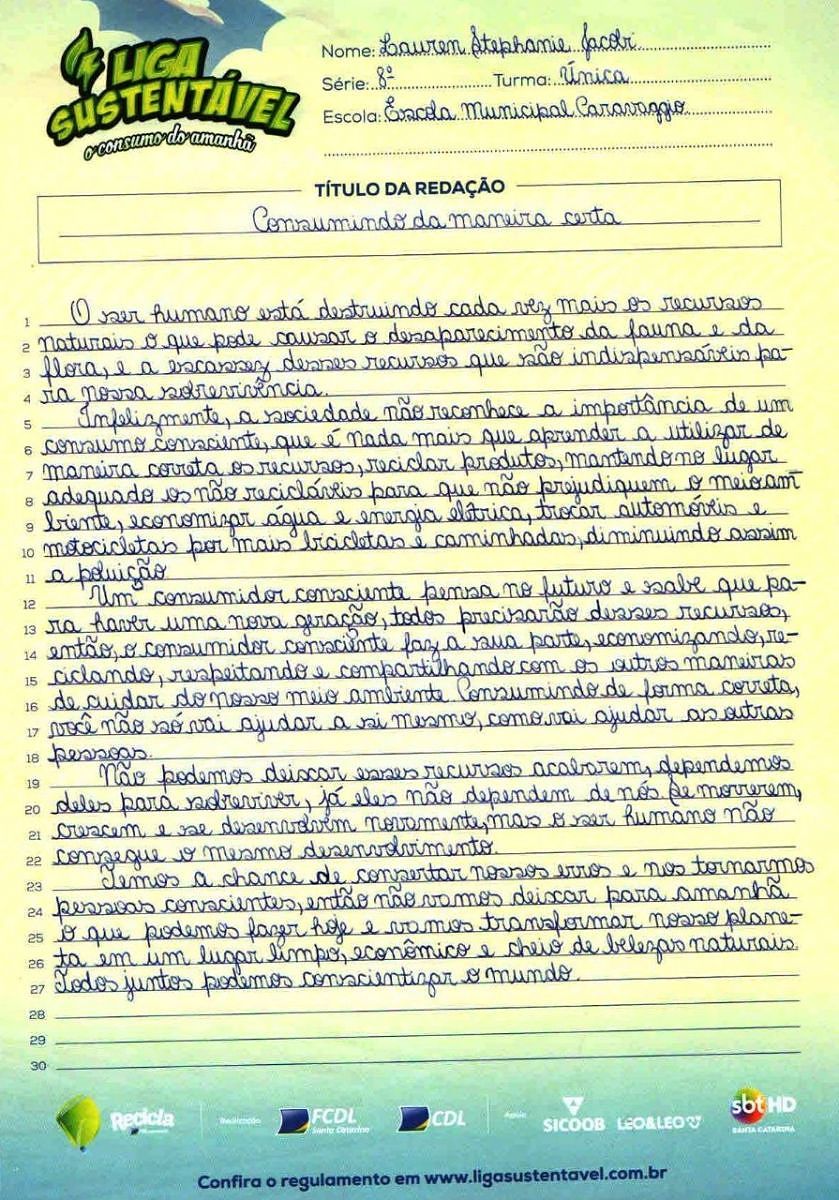 LIGA
SUSTENTÁVEL
o consumo do amanhã
Nome: Lauren Stephanie Jacobi
Série: 8º Turma: Única
Escola: Escola Municipal Caravaggio
TÍTULO DA REDAÇÃO
Consumindo da maneira certa
1 O ser humano está destruindo cada vez mais os recursos
2 naturais o que pode causar o desaparecimento da fauna e da
3 flora, e a escassez desses recursos que são indispensáveis pa-
4 ra nossa sobrevivência.
5 Infelizmente, a sociedade não reconhece a importância de um
6 consumo consciente, que é nada mais que aprender a utilizar de
7 maneira correta os recursos, reciclar produtos, mantendo no lugar
8 adequado os não recicláveis para que não prejudiquem o meio am
9 biente, economizar água e energia elétrica, trocar automóveis e
10 motocicletas por mais bicicletas e caminhadas, diminuindo assim
11 a poluição
12 Um consumidor consciente pensa no futuro e sabe que pa-
13 ra haver uma nova geração, todos precisarão desses recursos,
14 então, o consumidor consciente faz a sua parte, economizando, re-
15 ciclando, respeitando e compartilhando com os outros maneiras
16 de cuidar do nosso meio ambiente. Consumindo de forma correta,
17 você não só vai ajudar a si mesmo, como vai ajudar as outras
18 pessoas.
19 Não podemos deixar esses recursos acabarem, dependemos
20 deles para sobreviver, já eles não dependem de nós se morrerem,
21 crescem e se desenvolvem novamente, mas o ser humano não
22 consegue o mesmo desenvolvimento.
23 Temos a chance de consertar nossos erros e nos tornarmos
24 pessoas conscientes, então não vamos deixar para amanhã
25 o que podemos fazer hoje e vamos transformar nosso plane-
26 ta em um lugar limpo, econômico e cheio de belezas naturais.
27 Todos juntos podemos conscientizar o mundo.
28
29
30
Recicla Realização FCDL Santa Catarina CDL Apoio SICOOB LEO&LEO sbt HD SANTA CATARINA
Confira o regulamento em www.ligasustentavel.com.br